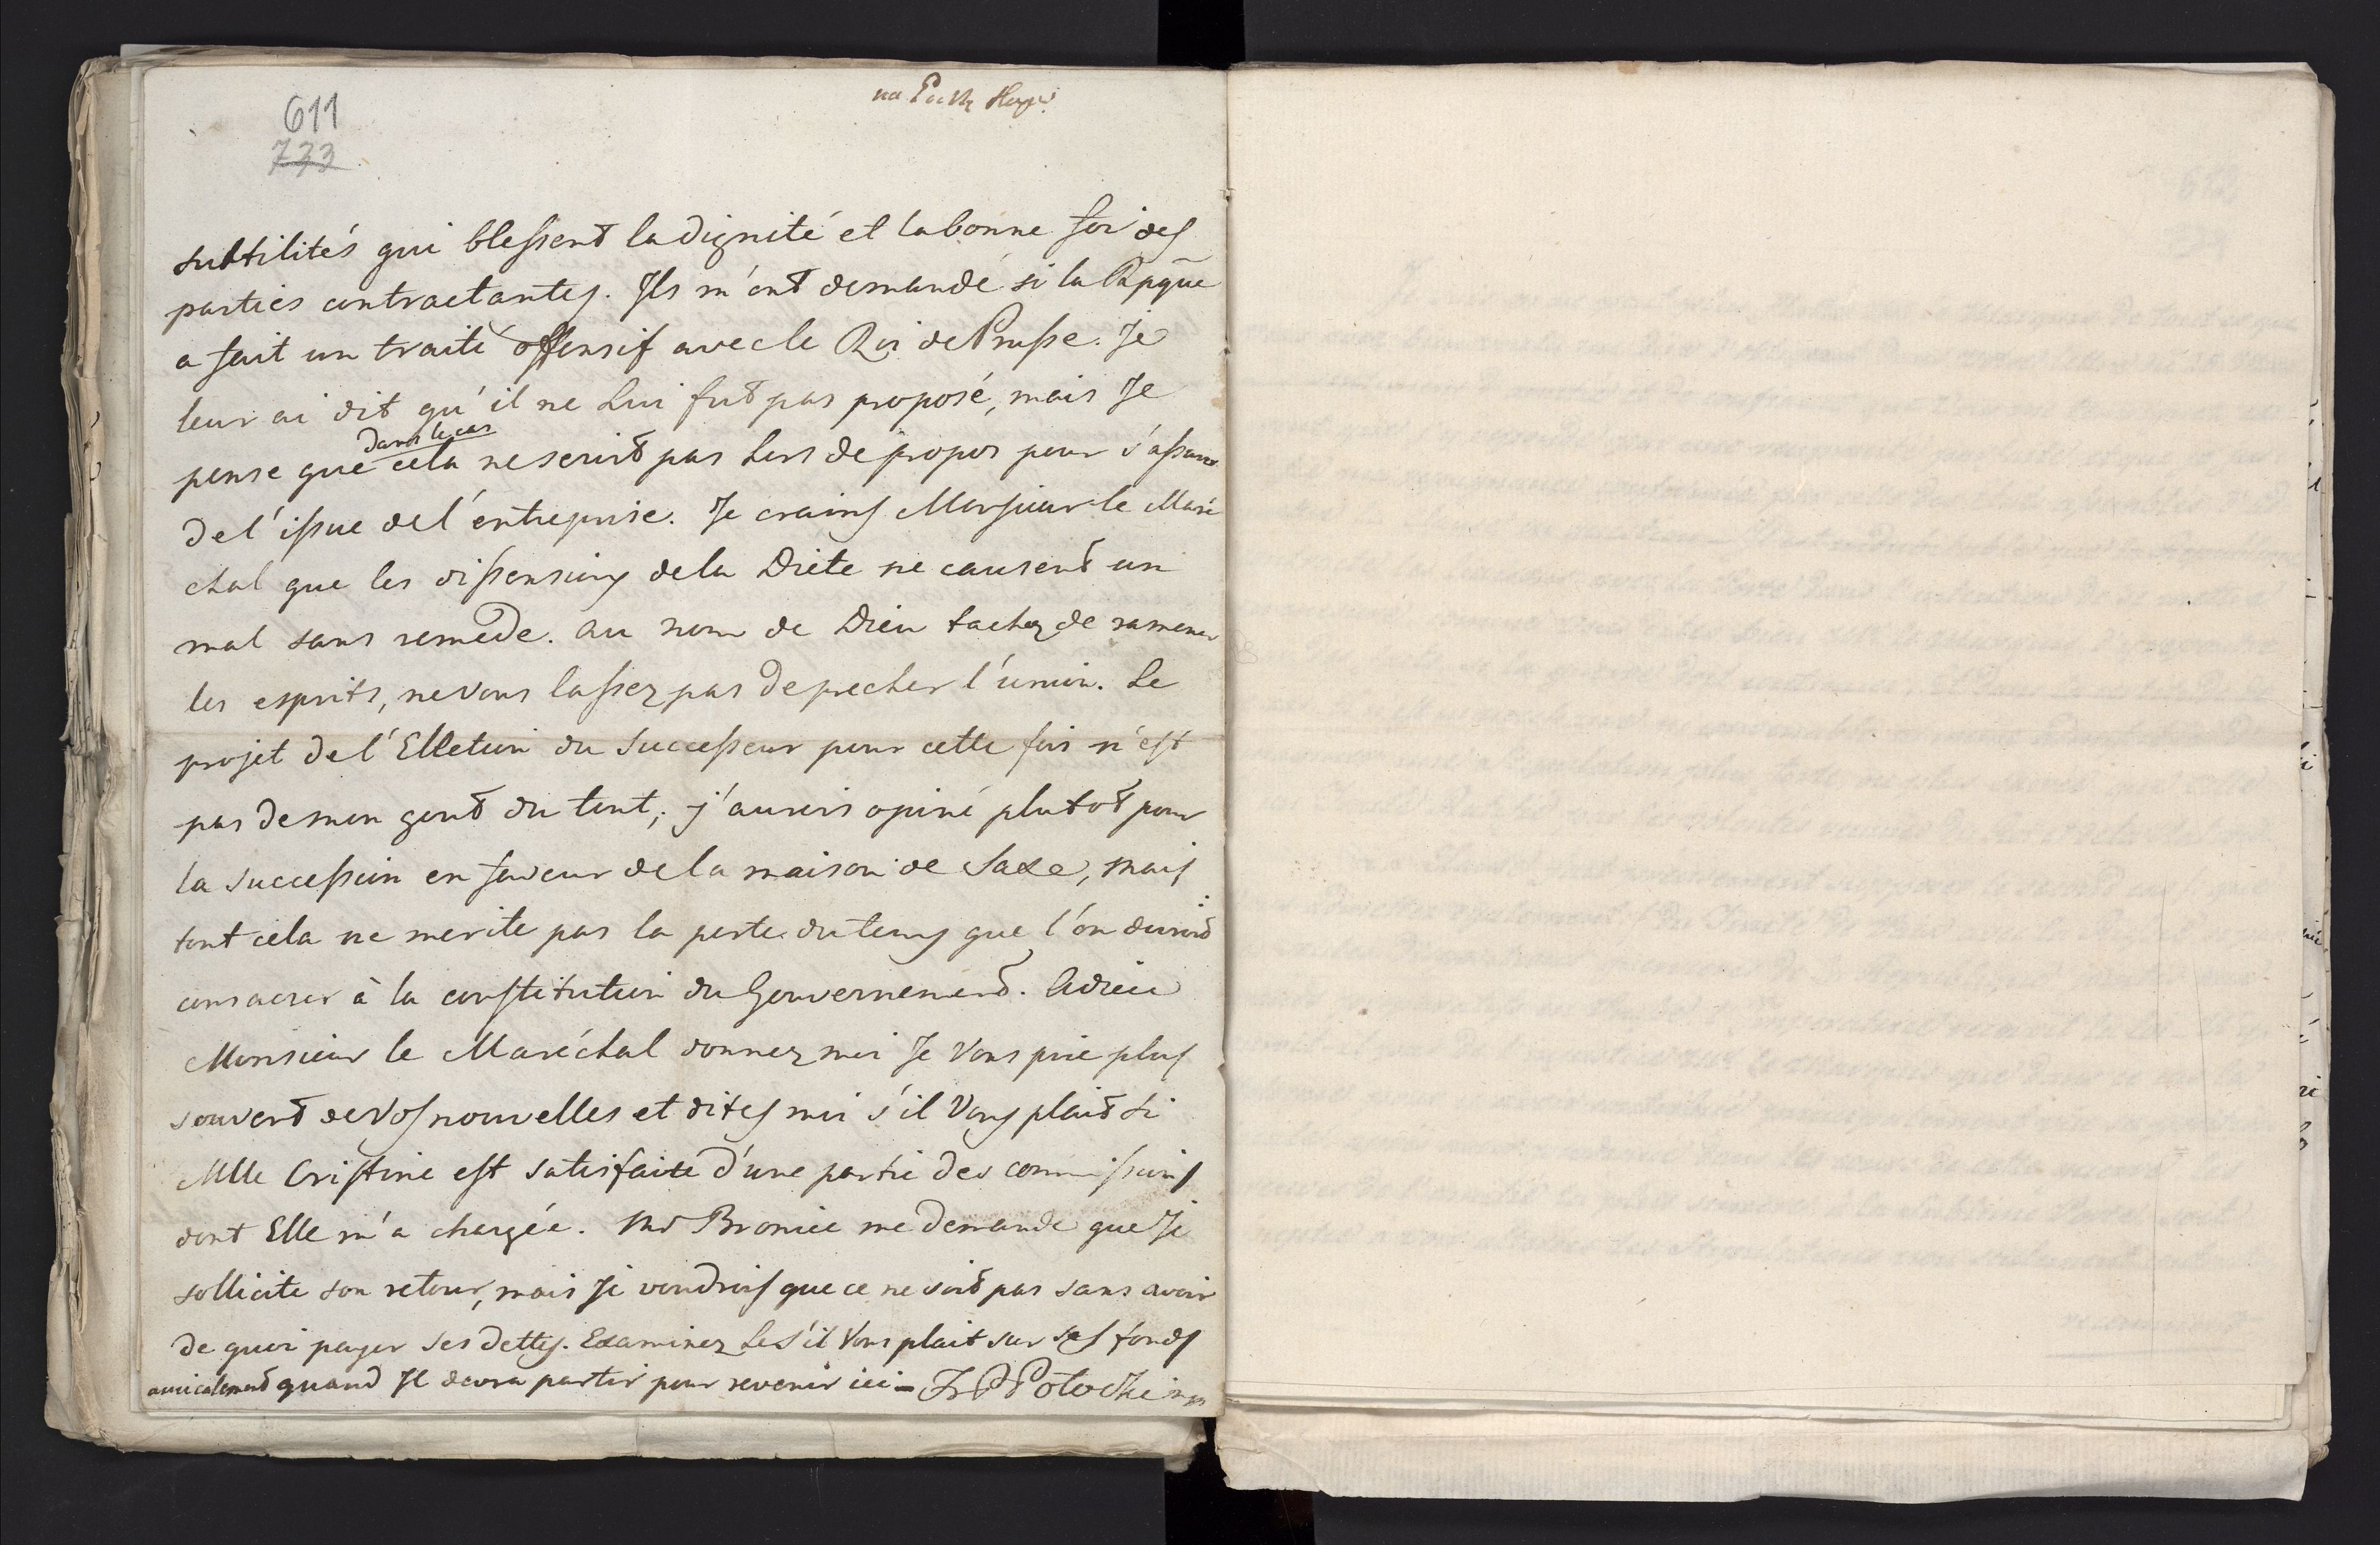 611
733
na
subtilités qui blessent la dignité et la bonne foi des
parties contractantes. Ils m'ont demandé si la Rpque
a fait un traité offensif avec le Roi de Prusse. Je
leur ai dit qu'il ne Lui fut pas proposé, mais Je
dans le cas
pense que cela ne seroit pas hors de propos pour s'assurer
de l'issue de l'entreprise. Je crains Monsieur le Maré
chal que les dissensions de la Diete ne causent un
mal sans remede. au nom de Dieu tachez de ramener
les esprits, ne vous lassez pas de precher l'union. Le
projet de l'Elletion du Successeur pour cette fois n'est
pas de mon gout du tout, j'aurois opiné plutot pour
la succession en faveur de la maison de Saxe, mais
tout cela ne merite pas la perte du tems que l'on devroit
consacrer à la constitution du Gouvernement. Adieu
Monsieur le Maréchal donnez moi Je Vous prie plus
souvent de Vos nouvelles et dites moi s'il Vous plait si
Mlle Cristine est satisfaite d'une partie des commissions
dont Elle m'a chargée. Mr Bronice me demande que Je
sollicite son retour, mais Je voudrois que ce ne soit pas sans avoir
de quoi payer ses dettes. Examinez Le s'il Vous plait sur ses fonds
amicalement quand Il devra partir pour revenir ici – Potocki